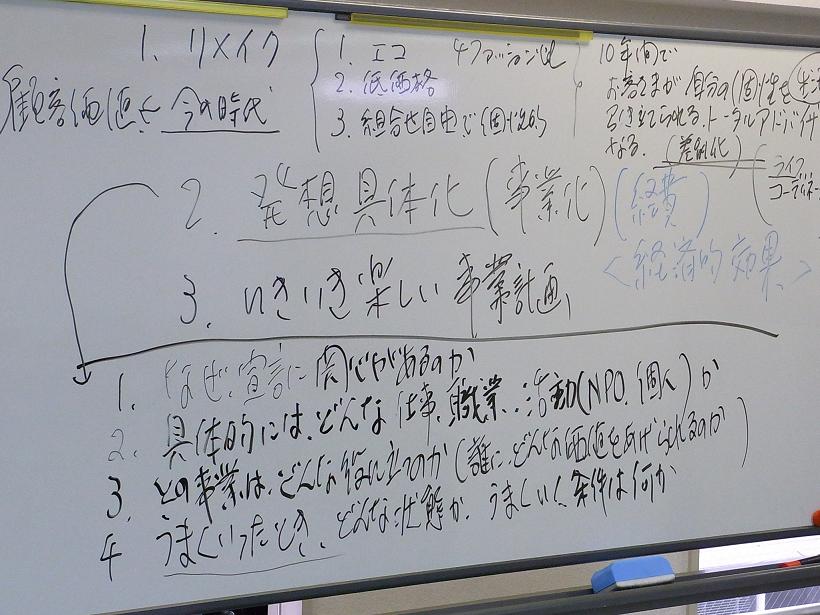 1. リメイク
顧客価値と今の時代
1. エコ 4ファッション化
2. 低価格
3. 組合せ自由で個性的
10年間で
お客さまが自分の個性を
引き立てられる、トータルアドバイザ
なる。(差別化)
ライフ
コーディネー
2. 発想具体化(事業化)(経費)
<経済的効果>
3. いきいき楽しい事業計画
1. なぜ、宣言に関心があるのか
2. 具体的には、どんな仕事、職業、活動(NPO、個人)か
3. どの事業は、どんな役に立つのか(誰に、どんな価値をあげられるのか)
4 うまくいったとき、どんな状態か、うまくいく条件は何か